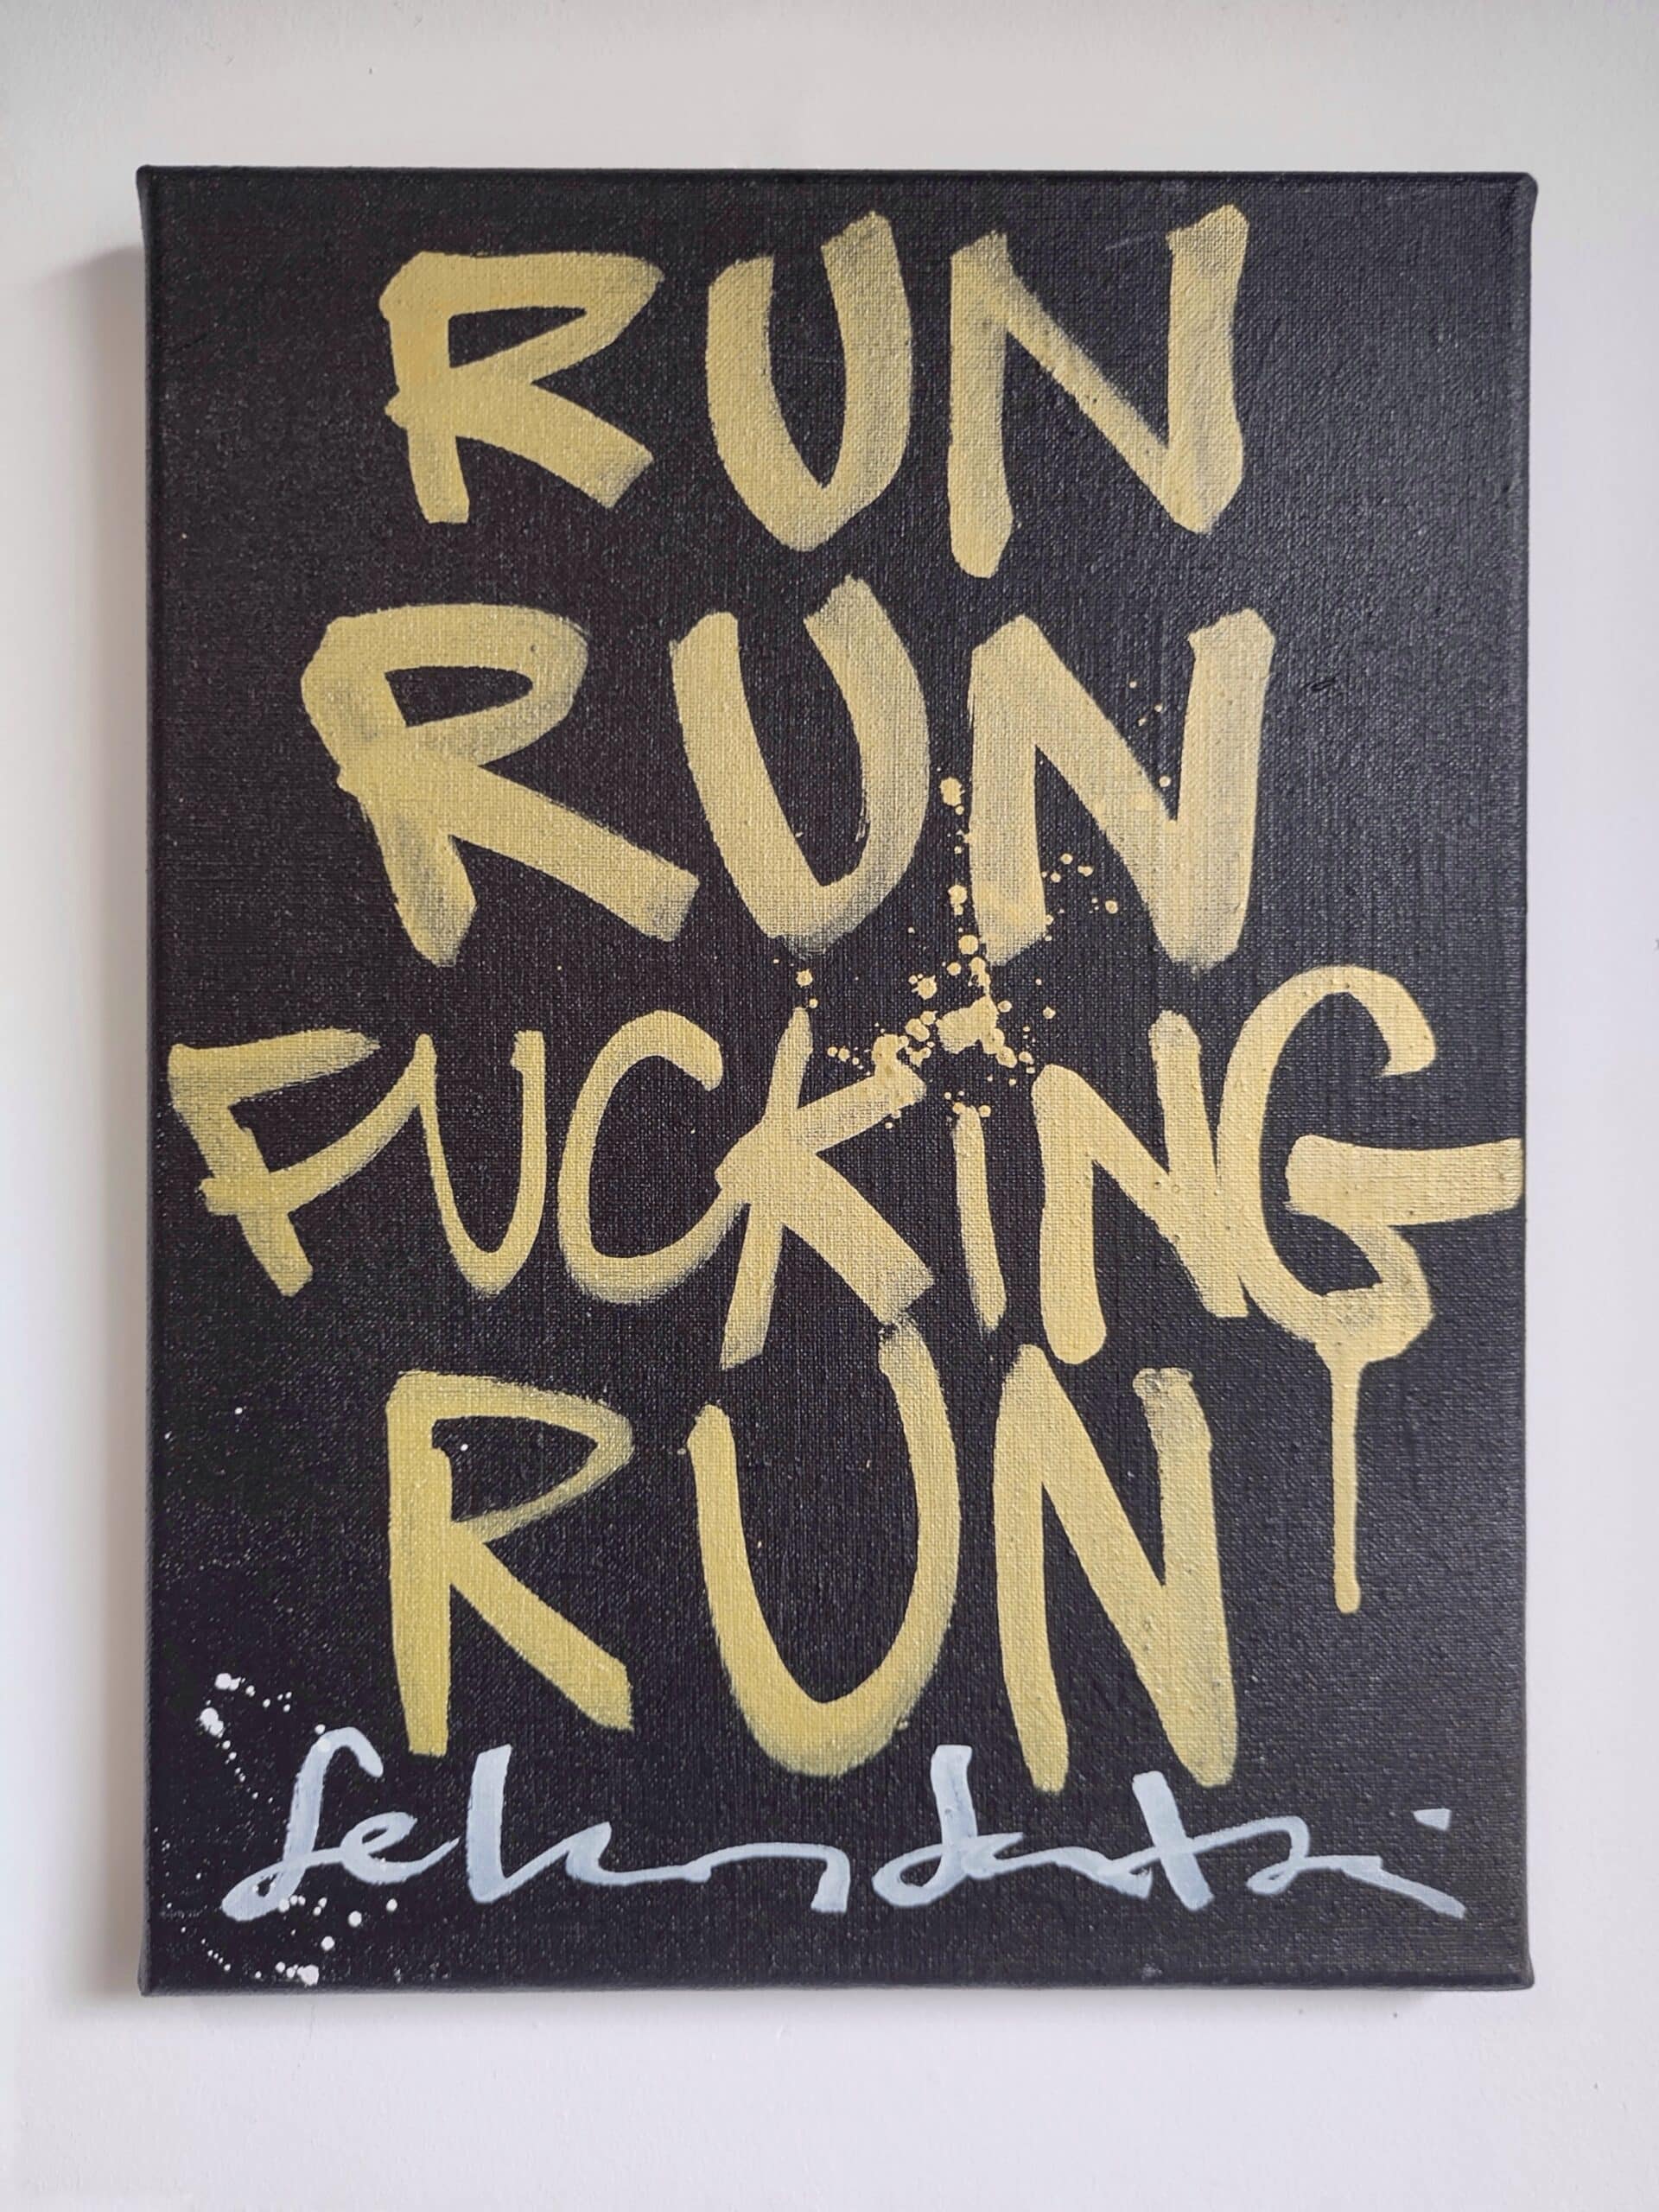 RUN
RUN
FUCKiNG
RUN